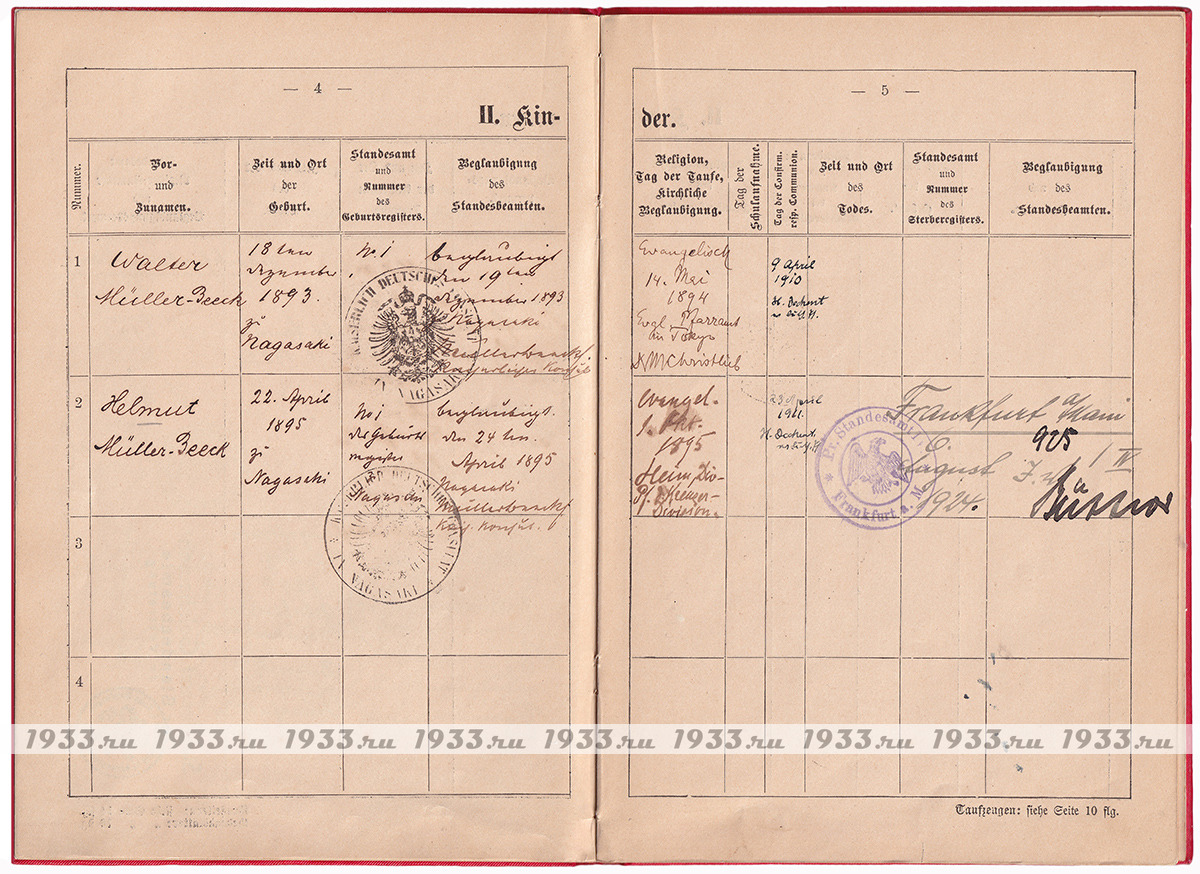 — 4 —
II. Kin-
Nummer.
Vor-
und
Zunamen.
Zeit und Ort
der
Geburt.
Standesamt
und
Nummer
des
Geburtsregisters.
Beglaubigung
des
Standesbeamten.
1
Walter
Müller-Beeck
18ten
Dezember
1893.
zu
Nagasaki
No. 1
beglaubigt
den 19ten
Dezember 1893
Nagasaki
Müller-Beeck
Kaiserlicher Konsul
KAISERLICH DEUTSCHES KONSULAT
IN NAGASAKI
2
Helmut
Müller-Beeck
22. April
1895
zu
Nagasaki
No 1
der Geburts
register
Nagasaki
beglaubigt.
den 24ten
April 1895
Nagasaki
Müller-Beeck
Kais. Konsul
KAISERLICH DEUTSCHES KONSULAT
* IN NAGASAKI *
3
4
— 5 —
der.
Religion,
Tag der Taufe,
Kirchliche
Beglaubigung.
Tag der
Schulaufnahme.
Tag der Confirm.
resp. Communion.
Zeit und Ort
des
Todes.
Standesamt
und
Nummer
des
Sterberegisters.
Beglaubigung
des
Standesbeamten.
Evangelisch
14. Mai
1894
Evgl. Pfarramt
in Tokyo
Christlieb
9 April
1910
H. Dechent
Evangel.
1. Okt.
1895
Division
23 April
1911.
H. Dechent
Frankfurt a/Main
6.
August
1924.
925
IV
Pr. Standesamt I
* Frankfurt a. M. *
Taufzeugen: siehe Seite 10 flg.
1933.ru 1933.ru 1933.ru 1933.ru 1933.ru 1933.ru 1933.ru 1933.ru 1933.ru